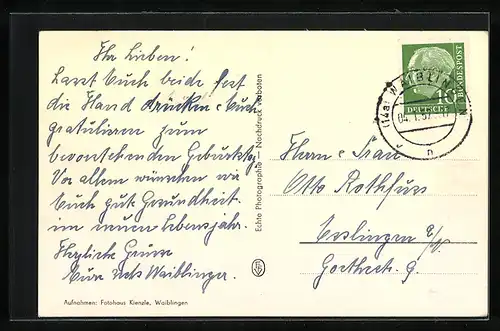 Ihr Lieben!
Lasst Euch beide fest
die Hand drücken u. Euch
gratulieren zum
bevorstehenden Geburtstg.
Vor allem wünschen wir
Euch gute Gesundheit
im neuen Lebensjahr.
Herzliche Grüsse
Eure Waiblinger.
Aufnahmen: Fotohaus Kienzle, Waiblingen
Echte Photographie — Nachdruck verboten
DEUTSCHE BUNDESPOST
10
(14a) WAIBLINGEN
Herrn u. Frau
Otto Rothfuss
Esslingen a/N.